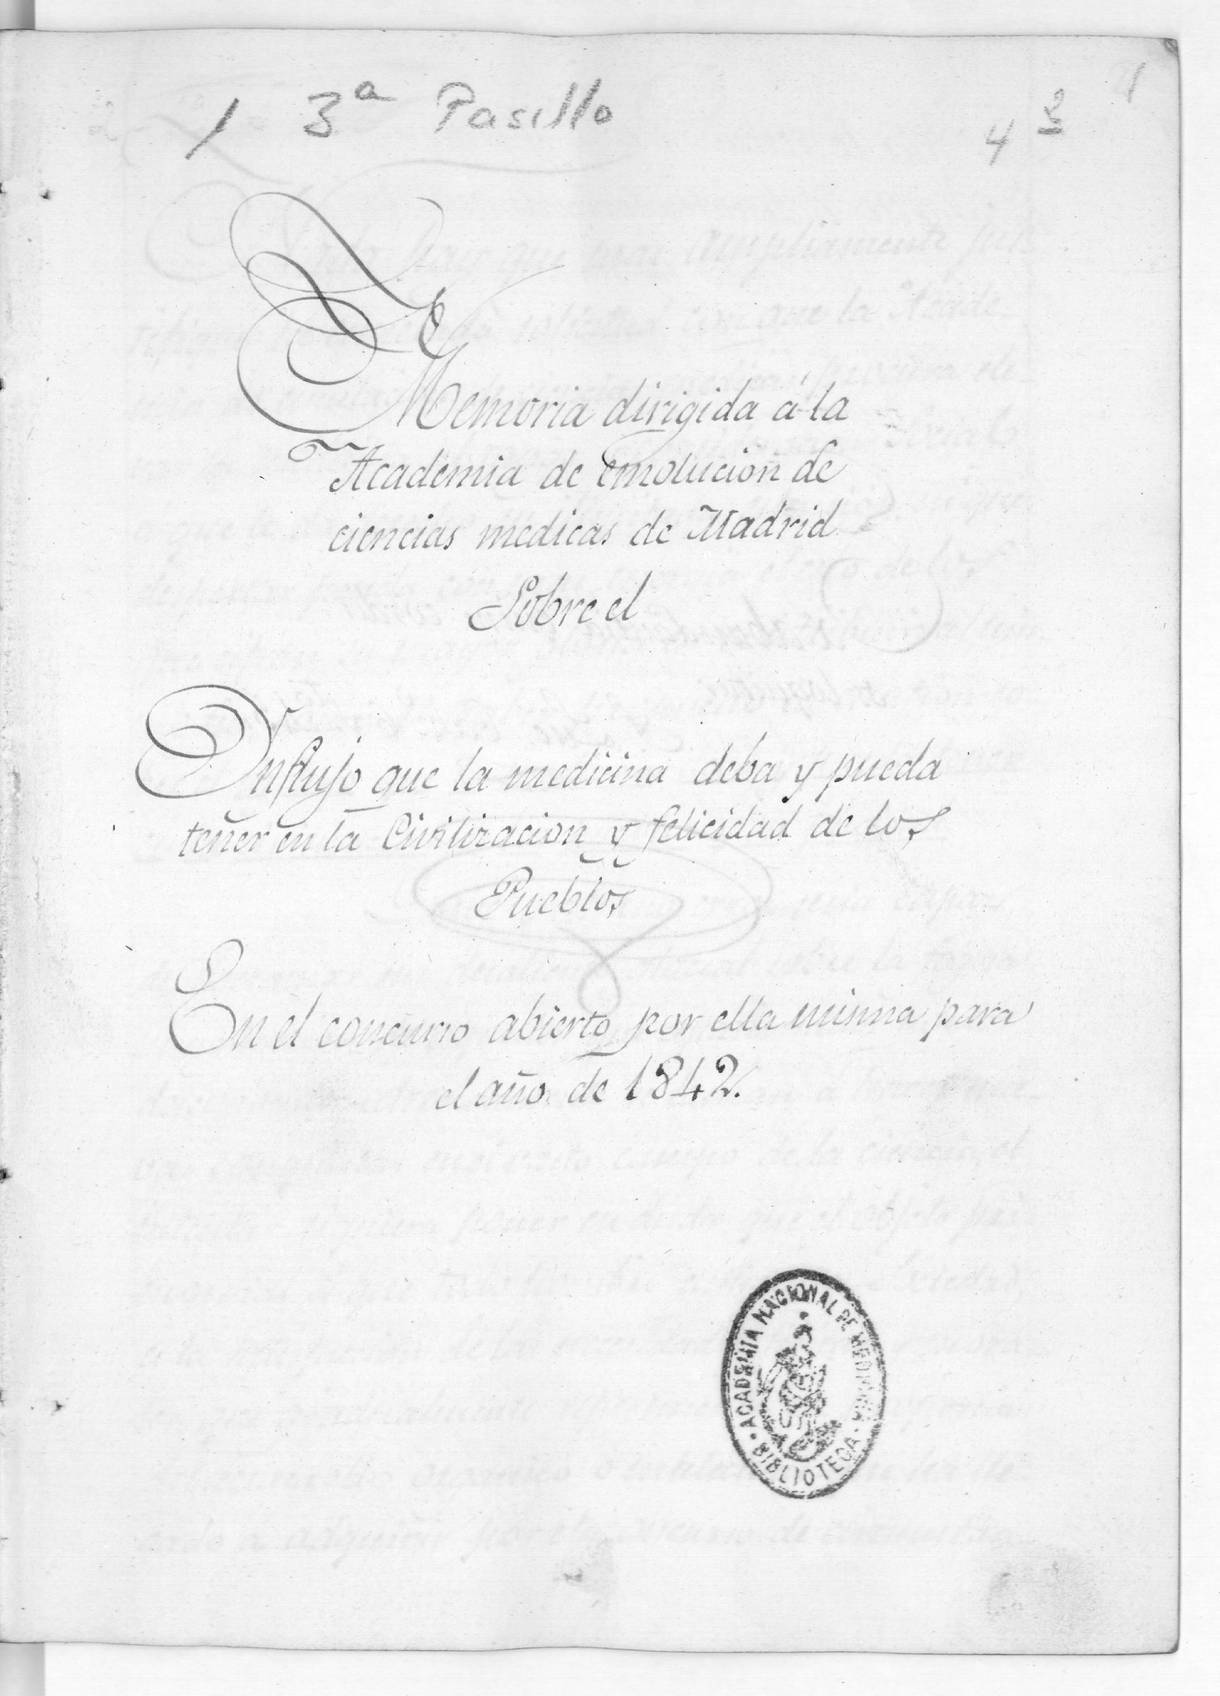 1 3ª Pasillo
4 3
1
Memoria dirigida á la
Academia de emolucion de
ciencias medicas de Madrid
Sobre el
Influjo que la medicina deba y pueda
tener en la Civilizacion y felicidad de los
Pueblos
En el concurso abierto por ella misma para
el año de 1842.
ACADEMIA NACIONAL DE MEDICINA
BIBLIOTECA